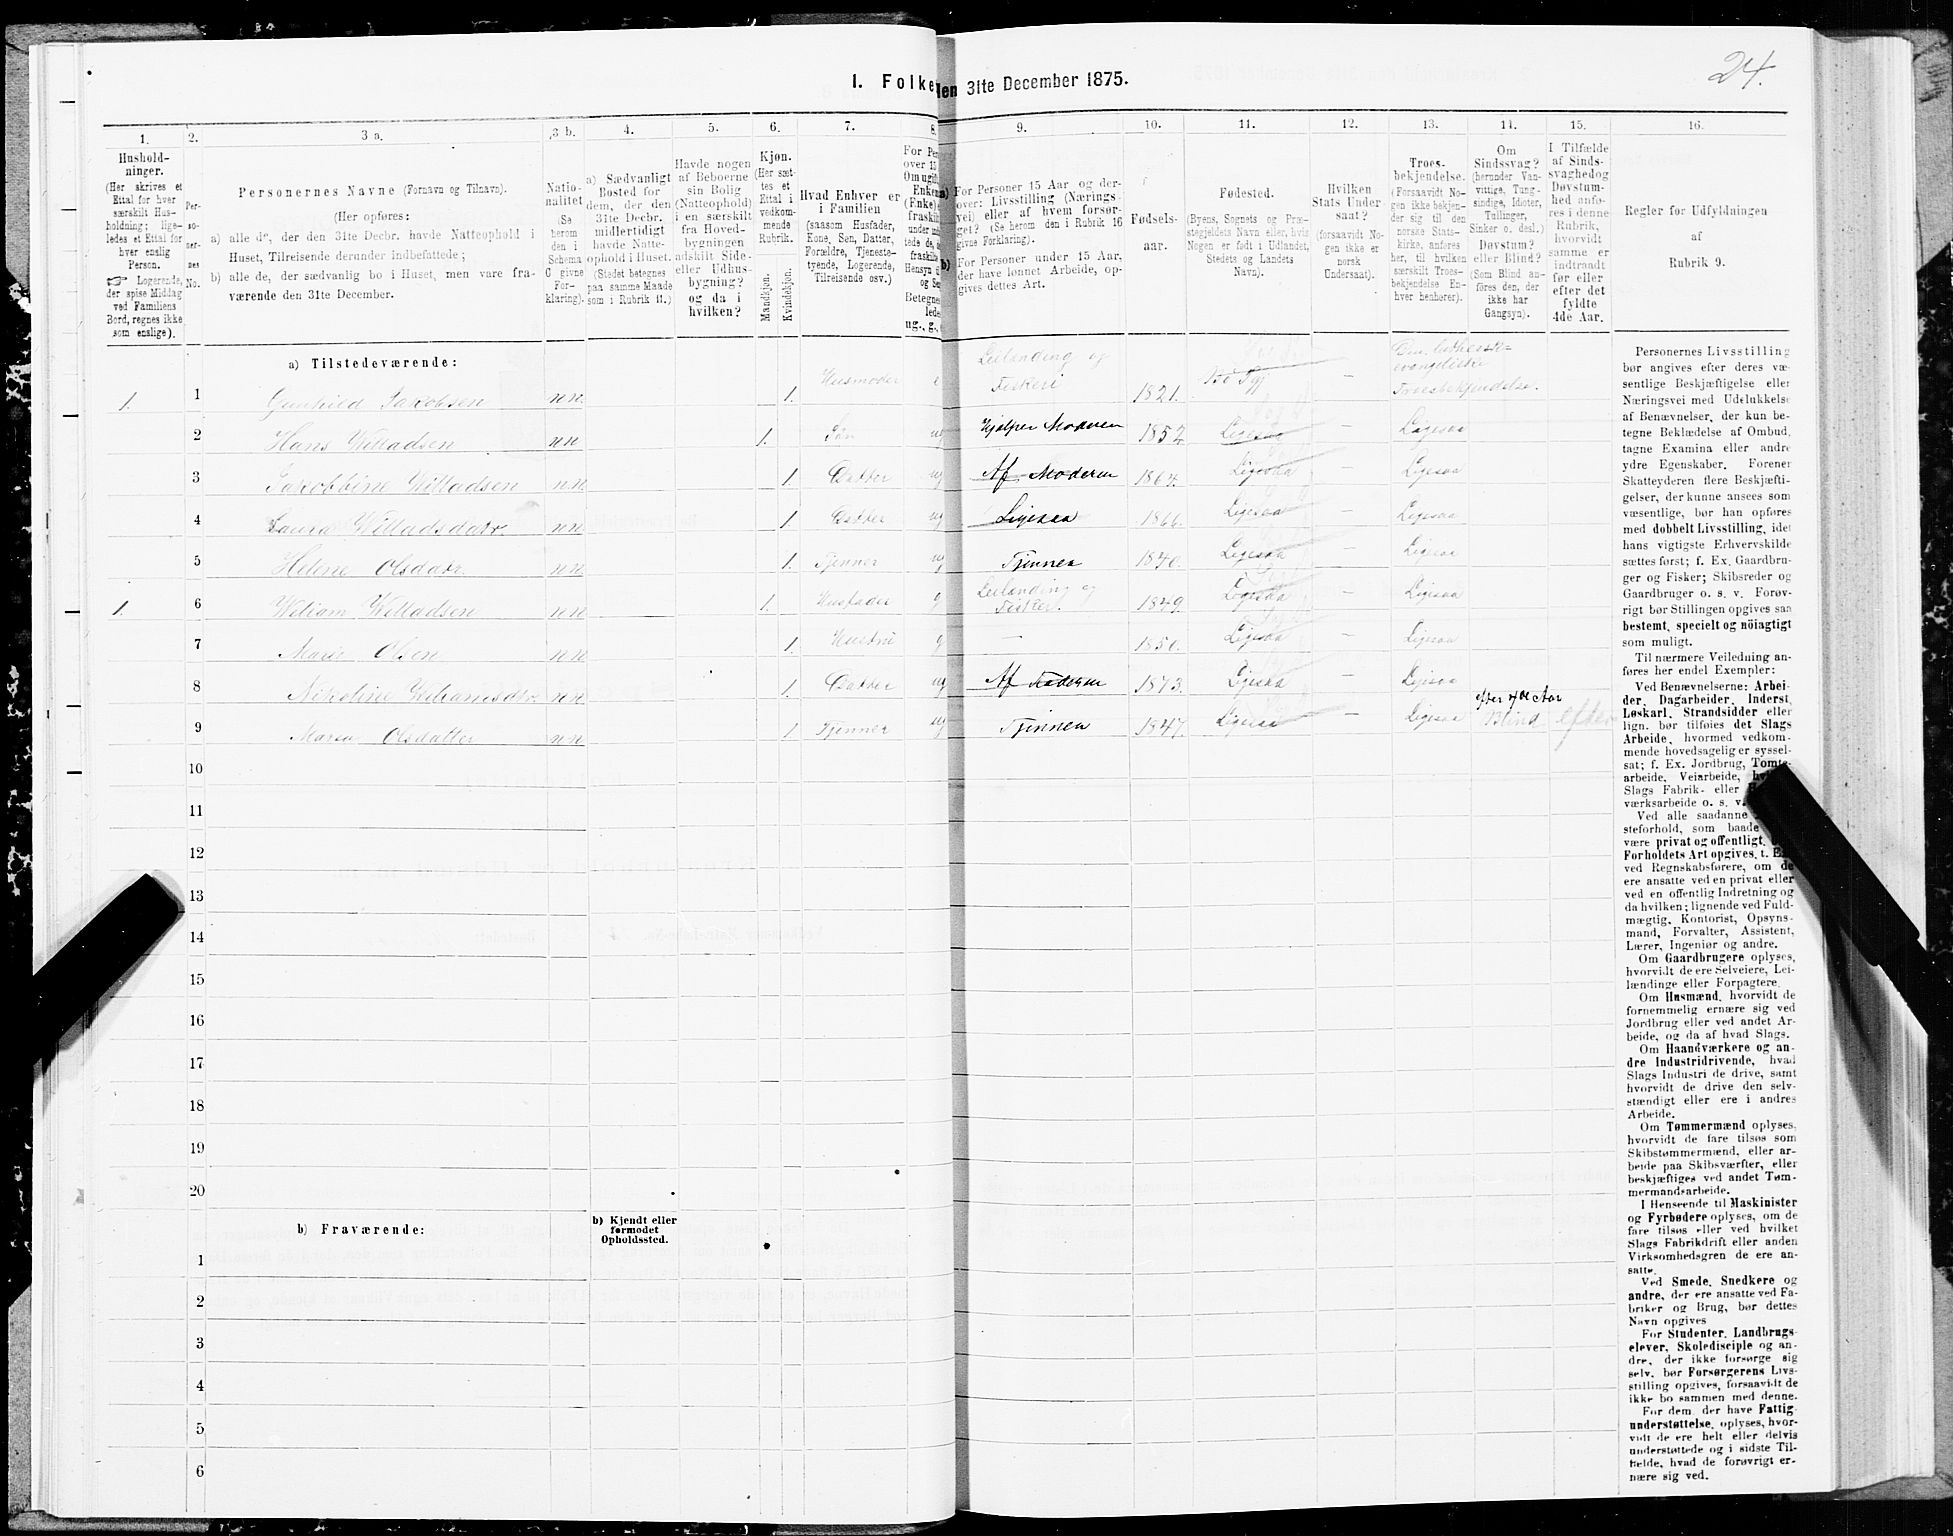 24.
1. Folke
den 31te December 1875.
1.
2.
3 a.
3 b.
4.
5.
6.
7.
8.
9.
10.
11.
12.
13.
14.
15.
16.
Hushold-
ninger.
(Her skrives et
Ettal for hver
særskilt Hus-
holdning; lige-
ledes et Ettal for
hver enslig
Person.
☞ Logerende,
der spise Middag
ved Familiens
Bord, regnes ikke
som enslige).
Per-
so-
ner-
nes
No.
Personernes Navne (Fornavn og Tilnavn).
(Her opføres:
a) alle de, der den 31te Decbr. havde Natteophold i
Huset, Tilreisende derunder indbefattede;
b) alle de, der sædvanlig bo i Huset, men vare fra-
værende den 31te December.
Natio-
nalitet
(Se
herom
den i
Schema
G givne
For-
klaring).
a) Sædvanligt
Bosted for
dem, der den
31te Decbr.
midlertidigt
havde Natte-
ophold i Huset.
(Stedet betegnes
paa samme Maade
som i Rubrik 11.)
Havde nogen
af Beboerne
sin Bolig
(Natteophold)
i en særskilt
fra Hoved-
bygningen
adskilt Side-
eller Udhus-
bygning?
og da i
hvilken?
Kjøn.
(Her sæt-
tes et
Ettal i
vedkom-
mende
Rubrik.
Mandkjøn.
Kvindekjøn.
Hvad Enhver er
i Familien
(saasom Husfader,
Kone, Søn, Datter,
Forældre, Tjeneste-
tyende, Logerende,
Tilreisende osv.)
For Per
over 15
Om ugift
Enkem
(Enke),
fraskilt
under mid
tede de,
fraskilte
Hensyn
og Se
Betegnes
lede
ug., g.,
a)
For Personer 15 Aar og der-
over: Livsstilling (Nærings-
vei) eller af hvem forsør-
get? (Se herom den i Rubrik 16
givne Forklaring).
b)
For Personer under 15 Aar,
der have lønnet Arbeide, op-
gives dettes Art.
Fødsels-
aar.
Fødested.
(Byens, Sognets og Præ-
stegjeldets Navn eller, hvis
Nogen er født i Udlandet,
Stedets og Landets
Navn).
Hvilken
Stats Under-
saat?
(forsaavidt No-
gen ikke er
norsk
Undersaat).
Troes-
bekjendelse.
(Forsaavidt No-
gen ikke bekjen-
der sig til den
norske Stats-
kirke, anføres
her, til hvilken
særskilt Troes-
bekjendelse En-
hver henhører).
Om
Sindssvag?
(herunder Van-
vittige, Tung-
sindige, Idioter,
Tullinger,
Sinker o. desl.)
Døvstum?
eller Blind?
(Som Blind an-
føres den, der
ikke har
Gangsyn).
I Tilfælde
af Sinds-
svaghed og
Døvstum-
hed anfø-
res i denne
Rubrik,
hvorvidt
samme er
indtraadt
før eller
efter det
fyldte
4de Aar.
Regler for Udfyldningen
af
Rubrik 9.
a) Tilstedeværende:
1. 1 Gunhild Jakobsen n.n. 1. Husmoder e Leilænding og Fiskeri 1821. Bø Pgj — Den luthersk-evangeliske Troesbekjendelse.
2 Hans Willadsen n.n. 1. Søn ug Hjælper Moderen 1852 Ligesaa — Ligesaa
3 Jakobbine Willadsen n.n. 1 Datter ug Af Moderen 1864. Ligesaa — Ligesaa
4 Laura Willadsdatr. n.n. 1 Datter ug Ligesaa 1866. Ligesaa — Ligesaa
5 Heline Olsdatr. n.n. 1. Tjenner ug Tjennen 1840. Ligesaa — Ligesaa
1. 6 Wiliam Willadsen n.n. 1. Husfader g Leilænding og Fisker. 1849. Ligesaa — Ligesaa
7 Marie Olsen n.n. 1 Hustru g — 1850. Ligesaa — Ligesaa
8 Nikoline Wiliamsdtr. n.n. 1 Datter ug Af Faderen 1873. Ligesaa — Ligesaa
9 Marsa Olsdatter n.n. 1 Tjenner ug Tjennen 1847. Ligesaa — Ligesaa efter 4de Aar Blind efter
10
11
12
13
14
15
16
17
18
19
20
b) Fraværende:
b) Kjendt eller
formodet
Opholdssted.
1
2
3
4
5
6
Personernes Livsstilling
bør angives efter deres væ-
sentlige Beskjæftigelse eller
Næringsvei med Udelukkelse
af Benævnelser, der kun be-
tegne Beklædelse af Ombud,
tagne Examina eller andre
ydre Egenskaber. Forener
Skatteyderen flere Beskjæfti-
gelser, der kunne ansees som
væsentlige, bør han opføres
med dobbelt Livsstilling, idet
hans vigtigste Erhvervskilde
sættes først; f. Ex. Gaardbru-
ger og Fisker; Skibsreder og
Gaardbruger o. s. v. Forøv-
rigt bør Stillingen opgives saa
bestemt, specielt og nöiagtigt
som muligt.
Til nærmere Veiledning an-
føres her endel Exempler:
Ved Benævnelserne: Arbei-
der, Dagarbeider, Inderst,
Løskarl, Strandsidder eller
lign. bør tilføies det Slags
Arbeide, hvormed vedkom-
mende hovedsagelig er syssel-
sat; f. Ex. Jordbrug, Tomte-
arbeide, Veiarbeide,
Slags Fabrik- eller
værksarbeide o. s. v.
Ved alle saadanne
steforhold, som baade
være privat og offentligt,
Forholdets Art opgives, t. E
ved Regnskabsførere, om de
ere ansatte ved en privat eller
ved en offentlig Indretning og
da hvilken; lignende ved Fuld-
mægtig, Kontorist, Opsyns-
mand, Forvalter, Assistent,
Lærer, Ingeniør og andre.
Om Gaardbrugere oplyses,
hvorvidt de ere Selveiere, Lei-
lændinge eller Forpagtere.
Om Husmænd, hvorvidt de
fornemmelig ernære sig ved
Jordbrug eller ved andet Ar-
beide, og da af hvad Slags.
Om Haandværkere og an-
dre Industridrivende, hvad
Slags Industri de drive, samt
hvorvidt de drive den selv-
stændigt eller ere i andres
Arbeide.
Om Tømmermænd oplyses,
hvorvidt de fare tilsøs som
Skibstømmermænd, eller ar-
beide paa Skibsværfter, eller
beskjæftiges ved andet Tøm-
mermandsarbeide.
I Henseende til Maskinister
og Fyrbødere oplyses, om de
fare tilsøs eller ved hvilket
Slags Fabrikdrift eller anden
Virksomhedsgren de ere an-
satte.
Ved Smede, Snedkere og
andre, der ere ansatte ved Fa-
briker og Brug, bør dettes
Navn opgives
For Studenter, Landbrugs-
elever, Skoledisciple og an-
dre, der ikke forsørge sig
selv, bør Forsørgerens Livs-
stilling opgives, forsaavidt de
ikke bo sammen med denne.
For dem, der have Fattig-
understøttelse, oplyses, hvor-
vidt de ere helt eller delvis
understøttede og i sidste Til-
fælde, hvad de forøvrigt er-
nære sig ved.